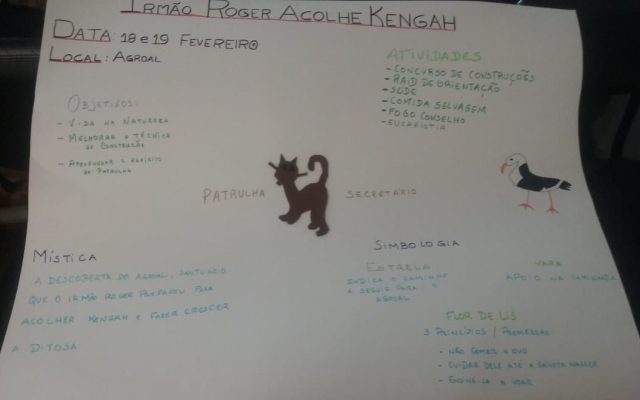 Irmão Roger Acolhe Kengah
Data: 18 e 19 Fevereiro
Local: Agroal
Atividades
- Concurso de Construções
- Raid de Orientação
- SŌDE
- Comida Selvagem
- Fogo Conselho
- Eucaristia
Objetivos:
- Vida na Natureza
- Melhorar a técnica
de construção
- Aprofundar o espírito
de patrulha
Patrulha
Secretário
Mística
A descoberta do Agroal, santuário
que o Irmão Roger preparou para
acolher Kengah e fazer crescer
a Ditosa
Simbologia
Estrela
Indica o caminho
a seguir para o
Agroal
Vara
Apoio na caminhada
Flor de Lis
3 Princípios / Promessas:
- Não comer o ovo
- Cuidar dele até a gaivota nascer
- Ensiná-la a voar